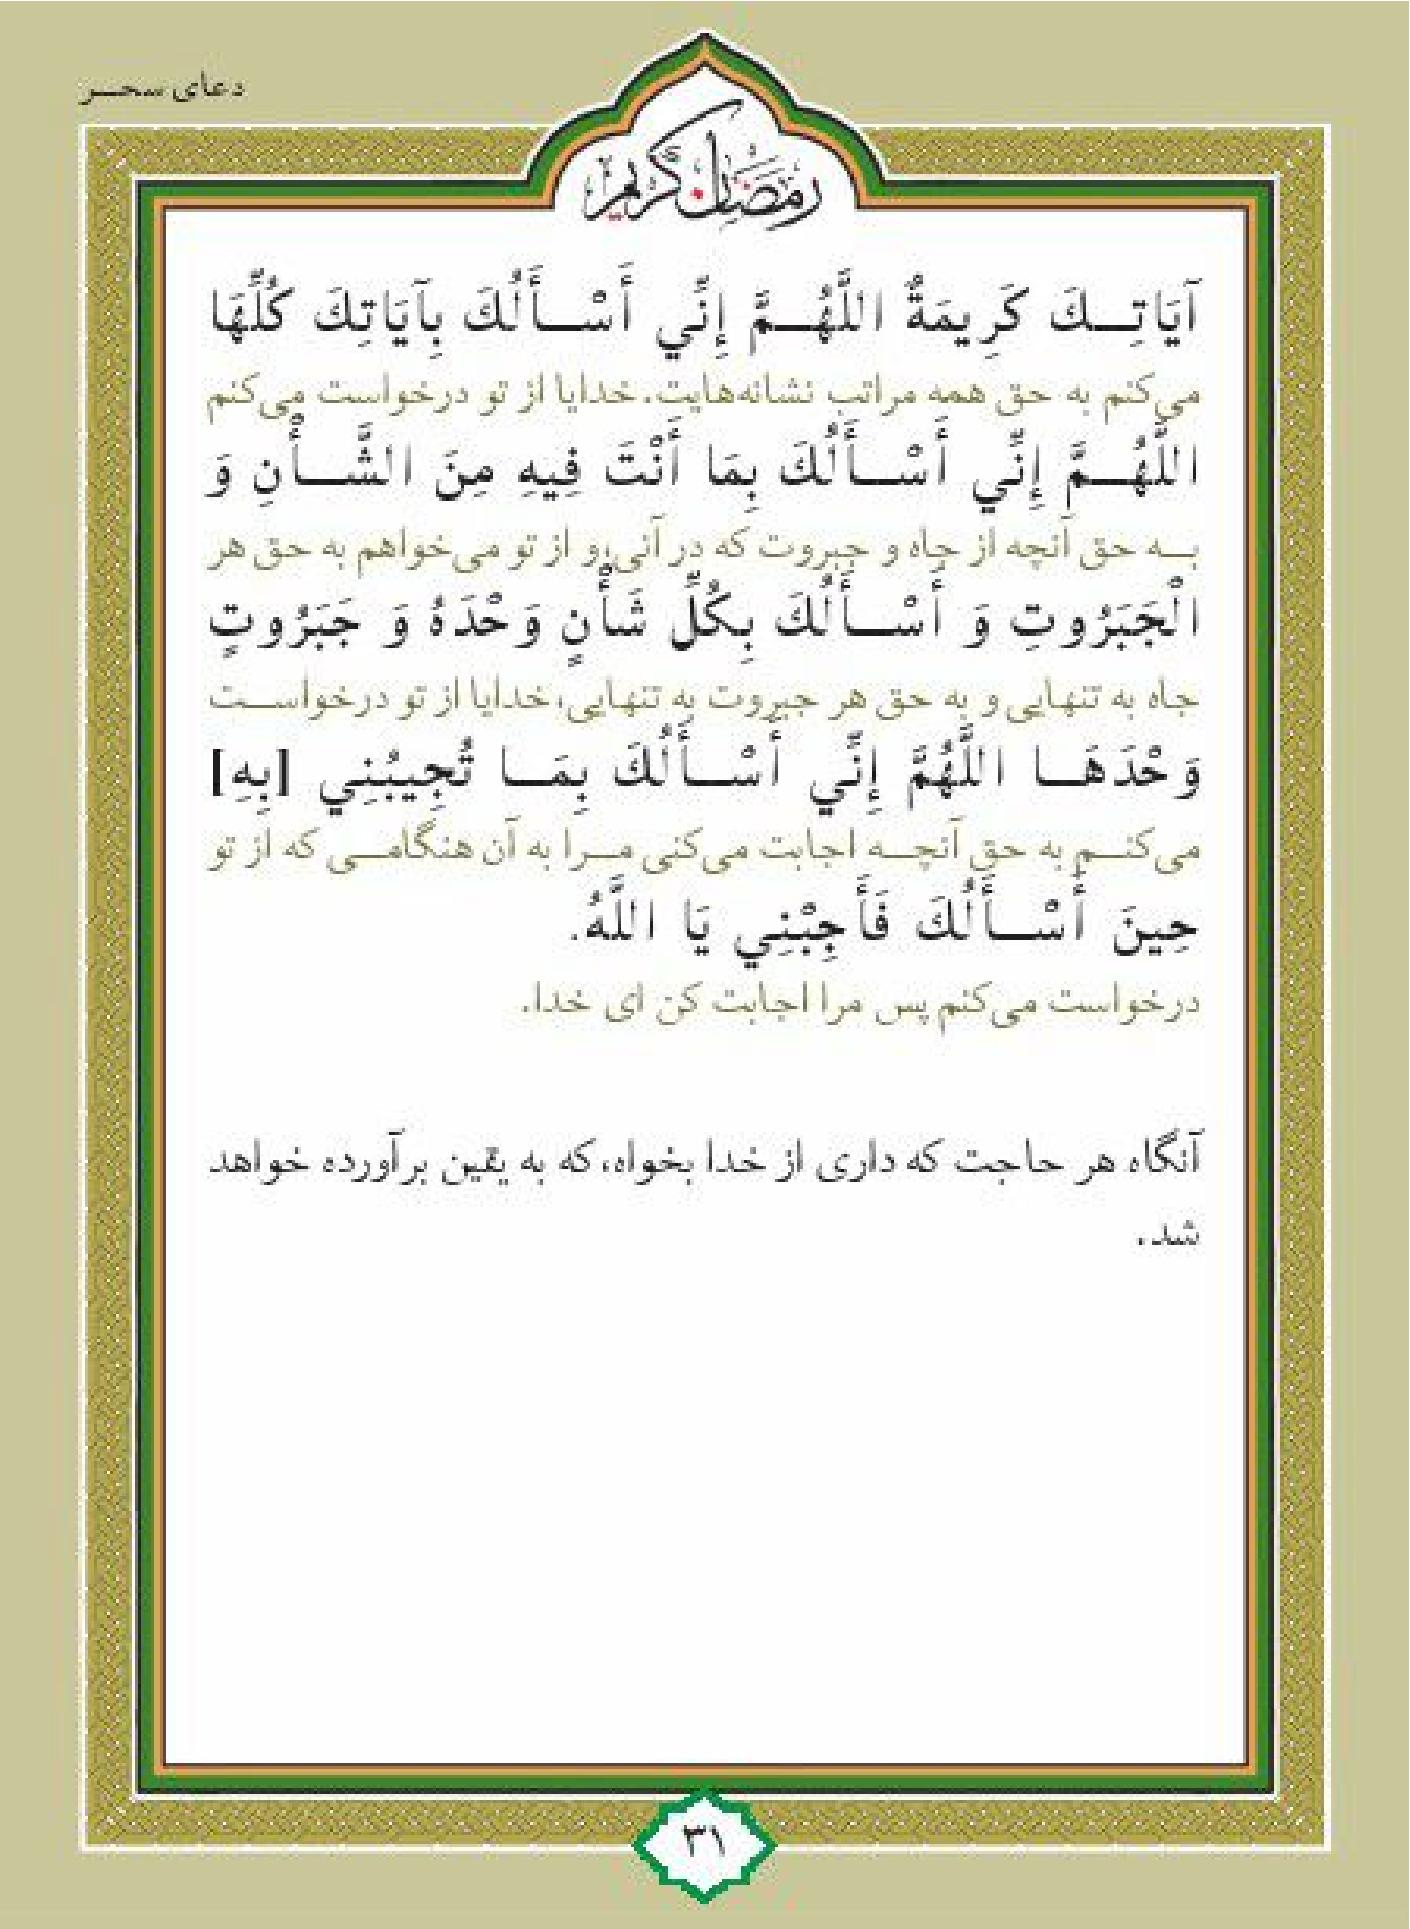 دعای سحــر
رمضان کریم
آيَاتِــكَ كَرِيمَةٌ اللَّهُــمَّ إِنِّي أَسْــأَلُكَ بِآيَاتِكَ كُلِّهَا
می‌کنم به حق همه مراتب نشانه‌هایت، خدایا از تو درخواست می‌کنم
اللَّهُــمَّ إِنِّي أَسْــأَلُكَ بِمَا أَنْتَ فِيهِ مِنَ الشَّــأْنِ وَ
بــه حق آنچه از جاه و جبروت که در آنی، و از تو می‌خواهم به حق هر
الْجَبَرُوتِ وَ أَسْــأَلُكَ بِكُلِّ شَأْنٍ وَحْدَهُ وَ جَبَرُوتٍ
جاه به تنهایی و به حق هر جبروت به تنهایی، خدایا از تو درخواســت
وَحْدَهَــا اللَّهُمَّ إِنِّي أَسْــأَلُكَ بِمَــا تُجِيبُنِي [بِهِ]
می‌کنــم به حق آنچــه اجابت می‌کنی مــرا به آن هنگامــی که از تو
حِينَ أَسْــأَلُكَ فَأَجِبْنِي يَا اللَّهُ.
درخواست می‌کنم پس مرا اجابت کن ای خدا.
آنگاه هر حاجت که داری از خدا بخواه، که به یقین برآورده خواهد
شد.
۳۱